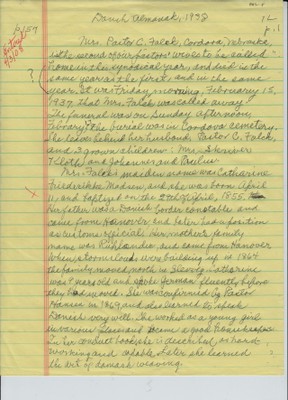 Danish Almanak, 1938
p 157
12
p. 1
Mrs. Pastor C. Falck, Cordova, Nebraska,
is the second of our pastors' wives to be called
home in the synodical year, and died in the
same year as the first, and in the same
year. It was Friday morning, February 15,
1937 that Mrs. Falck was called away.
The funeral was on Sunday afternoon,
the burial was in Cordova cemetery.
She leaves behind her husband, Pastor C. Falck,
and 3 grown children: Mrs.
and Johannes and Paulus.
Mrs. Falck's maiden name was Catharine
Frederikke Madsen, and she was born April
and baptized on the 29th of April, 1855.
Her father was a Danish border constable and
came from and later had a position
as customs official. Her mother's family
name was and came from Hanover
When storm clouds were building up in 1864
the family moved north in Slesvig. Catharine
was 9 years old and spoke German fluently before
they had moved. She was confirmed by Pastor
Hansen in 1869, and she learned to speak
Danish very well. She worked as a young girl
in various places and became a good
In her conduct book she is described as hard-
working and capable. Later she learned
the art of damask weaving.